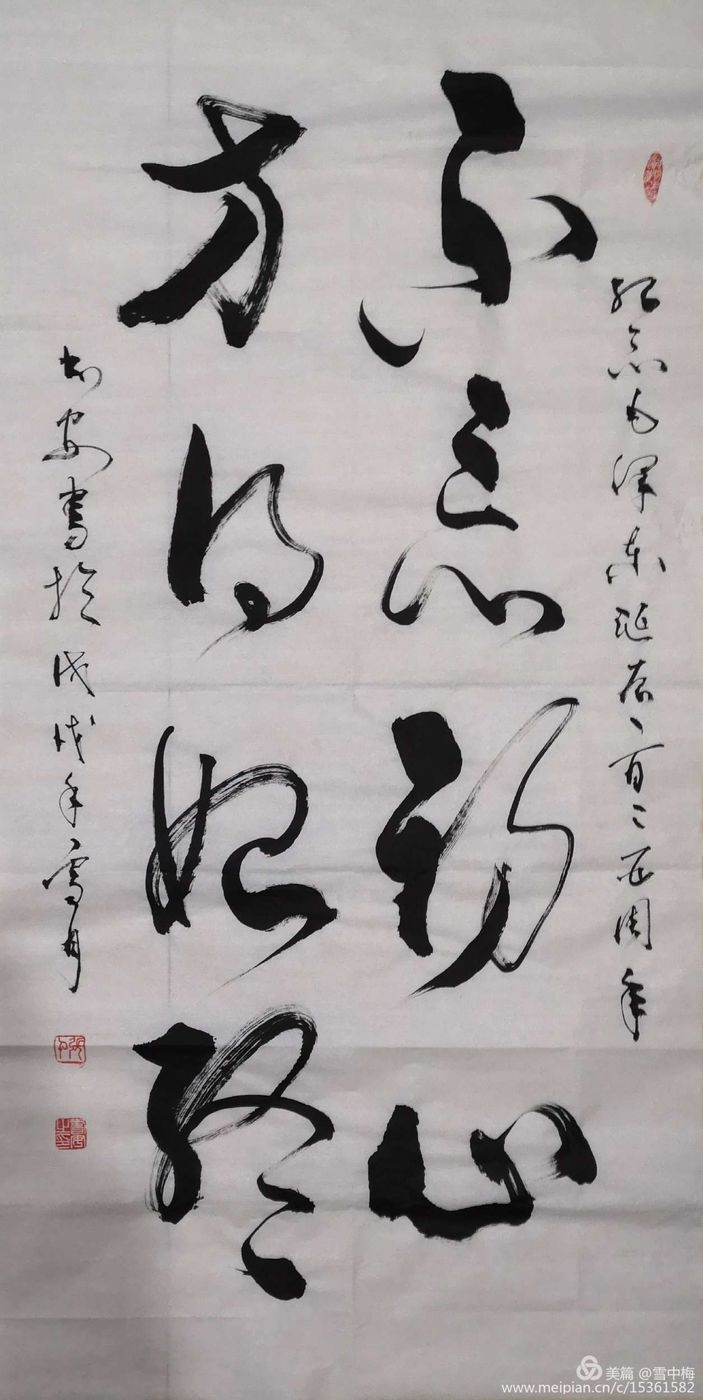 纪念毛泽东诞辰一百二五周年
不忘初心
方得始终
書於戊戌年雪月
美篇 @雪中梅
www.meipian.cn/c/15361582